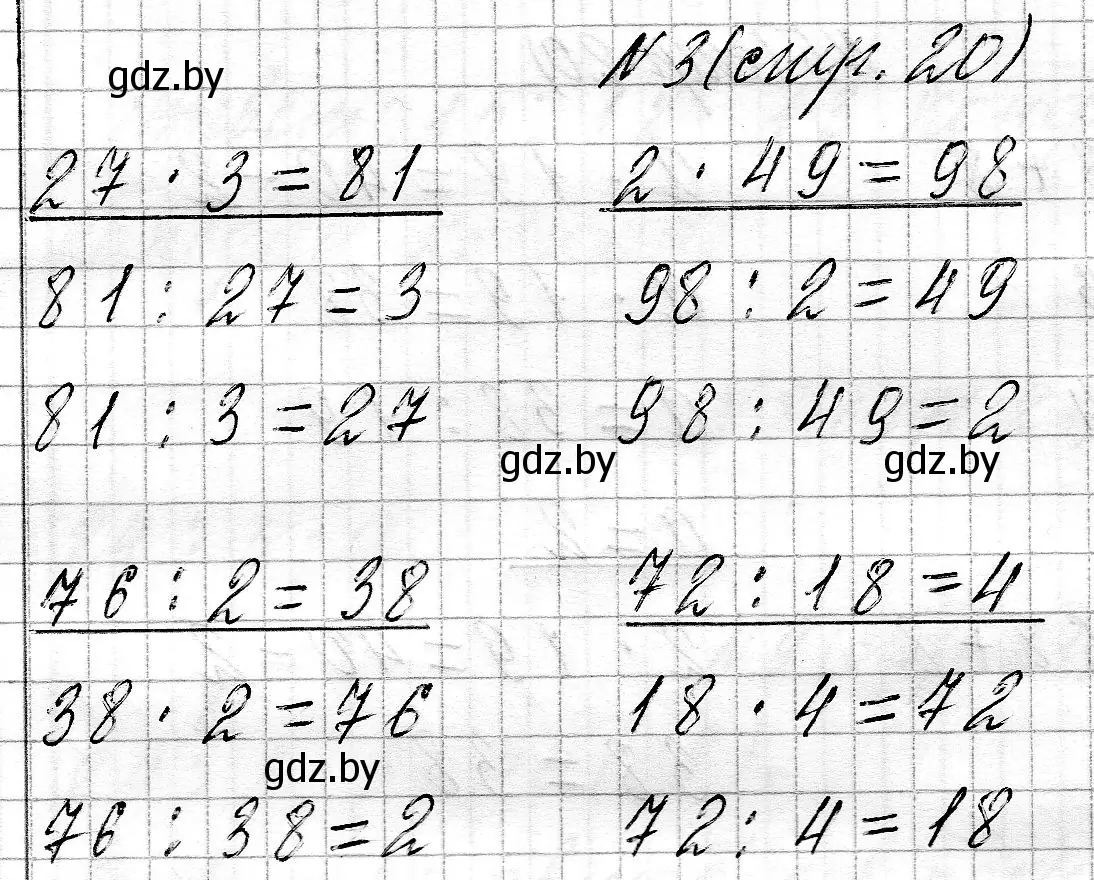 gdz.by
№3 (стр. 20)
27 · 3 = 81
81 : 27 = 3
81 : 3 = 27
2 · 49 = 98
98 : 2 = 49
98 : 49 = 2
gdz.by
gdz.by
76 : 2 = 38
38 · 2 = 76
gdz.by
76 : 38 = 2
72 : 18 = 4
18 · 4 = 72
72 : 4 = 18